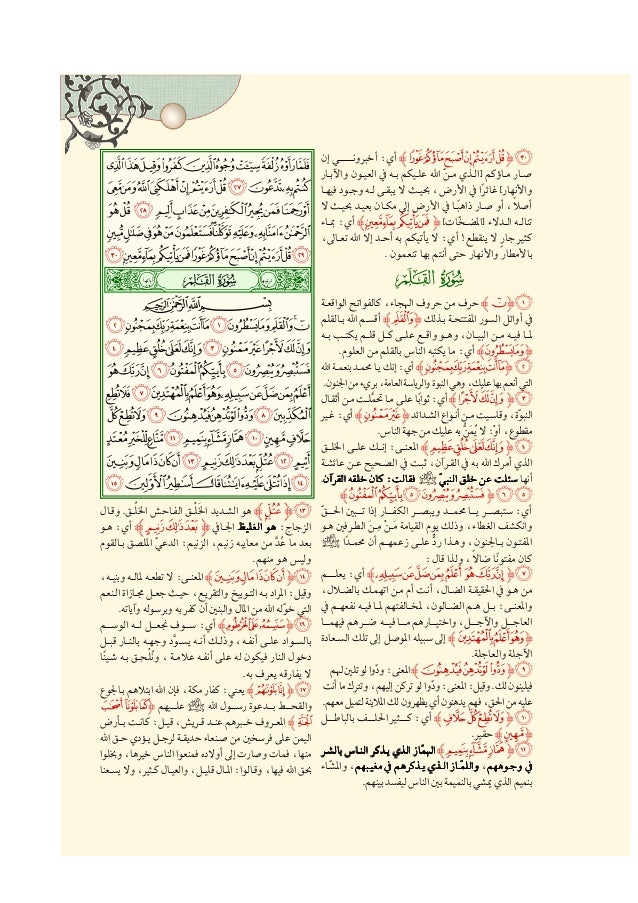 فَلَمَّا رَأَوْهُ زُلْفَةً سِيئَتْ وُجُوهُ الَّذِينَ كَفَرُوا وَقِيلَ هَذَا الَّذِي
كُنْتُمْ بِهِ تَدَّعُونَ ٢٧ قُلْ أَرَأَيْتُمْ إِنْ أَهْلَكَنِيَ اللَّهُ وَمَنْ مَعِيَ
أَوْ رَحِمَنَا فَمَنْ يُجِيرُ الْكَافِرِينَ مِنْ عَذَابٍ أَلِيمٍ ٢٨ قُلْ هُوَ
الرَّحْمَنُ آمَنَّا بِهِ وَعَلَيْهِ تَوَكَّلْنَا فَسَتَعْلَمُونَ مَنْ هُوَ فِي ضَلَالٍ مُبِينٍ
٢٩ قُلْ أَرَأَيْتُمْ إِنْ أَصْبَحَ مَاؤُكُمْ غَوْرًا فَمَنْ يَأْتِيكُمْ بِمَاءٍ مَعِينٍ ٣٠
سُورَةُ الْقَلَمِ
بِسْمِ اللَّهِ الرَّحْمَنِ الرَّحِيمِ
ن وَالْقَلَمِ وَمَا يَسْطُرُونَ ١ مَا أَنْتَ بِنِعْمَةِ رَبِّكَ بِمَجْنُونٍ ٢
وَإِنَّ لَكَ لَأَجْرًا غَيْرَ مَمْنُونٍ ٣ وَإِنَّكَ لَعَلَى خُلُقٍ عَظِيمٍ ٤
فَسَتُبْصِرُ وَيُبْصِرُونَ ٥ بِأَيِّكُمُ الْمَفْتُونُ ٦ إِنَّ رَبَّكَ هُوَ
أَعْلَمُ بِمَنْ ضَلَّ عَنْ سَبِيلِهِ وَهُوَ أَعْلَمُ بِالْمُهْتَدِينَ ٧ فَلَا تُطِعِ
الْمُكَذِّبِينَ ٨ وَدُّوا لَوْ تُدْهِنُ فَيُدْهِنُونَ ٩ وَلَا تُطِعْ كُلَّ
حَلَّافٍ مَهِينٍ ١٠ هَمَّازٍ مَشَّاءٍ بِنَمِيمٍ ١١ مَنَّاعٍ لِلْخَيْرِ مُعْتَدٍ
أَثِيمٍ ١٢ عُتُلٍّ بَعْدَ ذَلِكَ زَنِيمٍ ١٣ أَنْ كَانَ ذَا مَالٍ وَبَنِينَ
١٤ إِذَا تُتْلَى عَلَيْهِ آيَاتُنَا قَالَ أَسَاطِيرُ الْأَوَّلِينَ ١٥
٣٠ ﴿قُلْ أَرَأَيْتُمْ إِنْ أَصْبَحَ مَاؤُكُمْ غَوْرًا﴾ أي: أخبروني إن
صار ماؤكم الذي منّ الله عليكم به في العيون والآبار
والأنهار غائرًا في الأرض، بحيث لا يبقى له وجود فيها
أصلاً، أو صار ذاهبًا في الأرض إلى مكان بعيد بحيث لا
تناله الدلاء [المضخّات] ﴿فَمَنْ يَأْتِيكُمْ بِمَاءٍ مَعِينٍ﴾ أي: بماء
كثير جارٍ لا ينقطع؟ أي: لا يأتيكم به أحد إلا الله تعالى،
بالأمطار والأنهار حتى أنتم بها تنعمون.
سُورَةُ الْقَلَمِ
١ ﴿ن﴾ حرف من حروف الهجاء، كالفواتح الواقعة
في أوائل السور المفتتحة بذلك ﴿وَالْقَلَمِ﴾ أقسم الله بالقلم
لما فيه من البيان، وهو واقع على كل قلم يكتب به
﴿وَمَا يَسْطُرُونَ﴾ أي: ما يكتبه الناس بالقلم من العلوم.
٢ ﴿مَا أَنْتَ بِنِعْمَةِ رَبِّكَ بِمَجْنُونٍ﴾ أي: إنك يا محمد بنعمة الله
التي أنعم بها عليك، وهي النبوة والرياسة العامة، بريء من الجنون.
٣ ﴿وَإِنَّ لَكَ لَأَجْرًا﴾ أي: ثوابًا على ما تحمّلت من أثقال
النبوّة، وقاسيت من أنواع الشدائد ﴿غَيْرَ مَمْنُونٍ﴾ أي: غير
مقطوع، أو: لا يُمَنّ به عليك من جهة الناس.
٤ ﴿وَإِنَّكَ لَعَلَى خُلُقٍ عَظِيمٍ﴾ المعنى: إنك على الخلق
الذي أمرك الله به في القرآن، ثبت في الصحيح عن عائشة
أنها سئلت عن خلق النبيّ ﷺ فقالت: كان خلقه القرآن.
٥ ٦ ﴿فَسَتُبْصِرُ وَيُبْصِرُونَ ٥ بِأَيِّكُمُ الْمَفْتُونُ﴾
أي: ستبصر يا محمد ويبصر الكفار إذا تبين الحق
وانكشف الغطاء، وذلك يوم القيامة مَنْ مِنَ الطرفين هو
المفتون بالجنون، وهذا ردٌّ على زعمهم أن محمدًا ﷺ
كان مفتونًا ضالاً، ولذا قال:
٧ ﴿إِنَّ رَبَّكَ هُوَ أَعْلَمُ بِمَنْ ضَلَّ عَنْ سَبِيلِهِ﴾ أي: يعلم
من هو في الحقيقة الضال، أنت أم من اتهمك بالضلال،
والمعنى: بل هم الضالون، لمخالفتهم لما فيه نفعهم في
العاجل والآجل، واختيارهم ما فيه ضرهم فيهما
﴿وَهُوَ أَعْلَمُ بِالْمُهْتَدِينَ﴾ إلى سبيله الموصل إلى تلك السعادة
الآجلة والعاجلة.
٩ ﴿وَدُّوا لَوْ تُدْهِنُ فَيُدْهِنُونَ﴾ المعنى: ودّوا لو تلين لهم
فيلينون لك. وقيل: المعنى: ودّوا لو تركن إليهم، وتترك ما أنت
عليه من الحق، فهم يدهنون أي يظهرون لك الملاينة لتميل معهم.
١٠ ﴿وَلَا تُطِعْ كُلَّ حَلَّافٍ﴾ أي: كثير الحلف بالباطل
﴿مَهِينٍ﴾ حقير.
١١ ﴿هَمَّازٍ مَشَّاءٍ بِنَمِيمٍ﴾ الهمّاز الذي يذكر الناس بالشر
في وجوههم، واللمّاز الذي يذكرهم في مغيبهم، والمشّاء
بنميم الذي يمشي بالنميمة بين الناس ليفسد بينهم.
١٣ ﴿عُتُلٍّ﴾ هو الشديد الخَلْق الفاحش الخُلُق. وقال
الزجاج: هو الغليظ الجافي ﴿بَعْدَ ذَلِكَ زَنِيمٍ﴾ أي: هو
بعد ما عُدَّ من معايبه زنيم، الزنيم: الدعيّ الملصق بالقوم
وليس هو منهم.
١٤ ﴿أَنْ كَانَ ذَا مَالٍ وَبَنِينَ﴾ المعنى: لا تطعه لماله وبنيه،
وقيل: المراد به التوبيخ والتقريع، حيث جعل مجازاة النعم
التي خوّله الله من المال والبنين أن كفر به وبرسوله وآياته.
١٦ ﴿سَنَسِمُهُ عَلَى الْخُرْطُومِ﴾ أي: سوف نجعل له الوسم
بالسواد على أنفه، وذلك أنه يسودّ وجهه بالنار قبل
دخول النار فيكون له على أنفه علامة، ونُلحِق به شينًا
لا يفارقه يعرف به.
١٧ ﴿إِنَّا بَلَوْنَاهُمْ﴾ يعني: كفار مكة، فإن الله ابتلاهم بالجوع
والقحط بدعوة رسول الله ﷺ عليهم ﴿كَمَا بَلَوْنَا أَصْحَابَ
الْجَنَّةِ﴾ المعروف خبرهم عند قريش، قيل: كانت بأرض
اليمن على فرسخين من صنعاء حديقة لرجل يؤدي حق الله
منها، فمات وصارت إلى أولاده فمنعوا الناس خيرها، وبخلوا
بحق الله فيها، وقالوا: المال قليل، والعيال كثير، ولا يسعنا